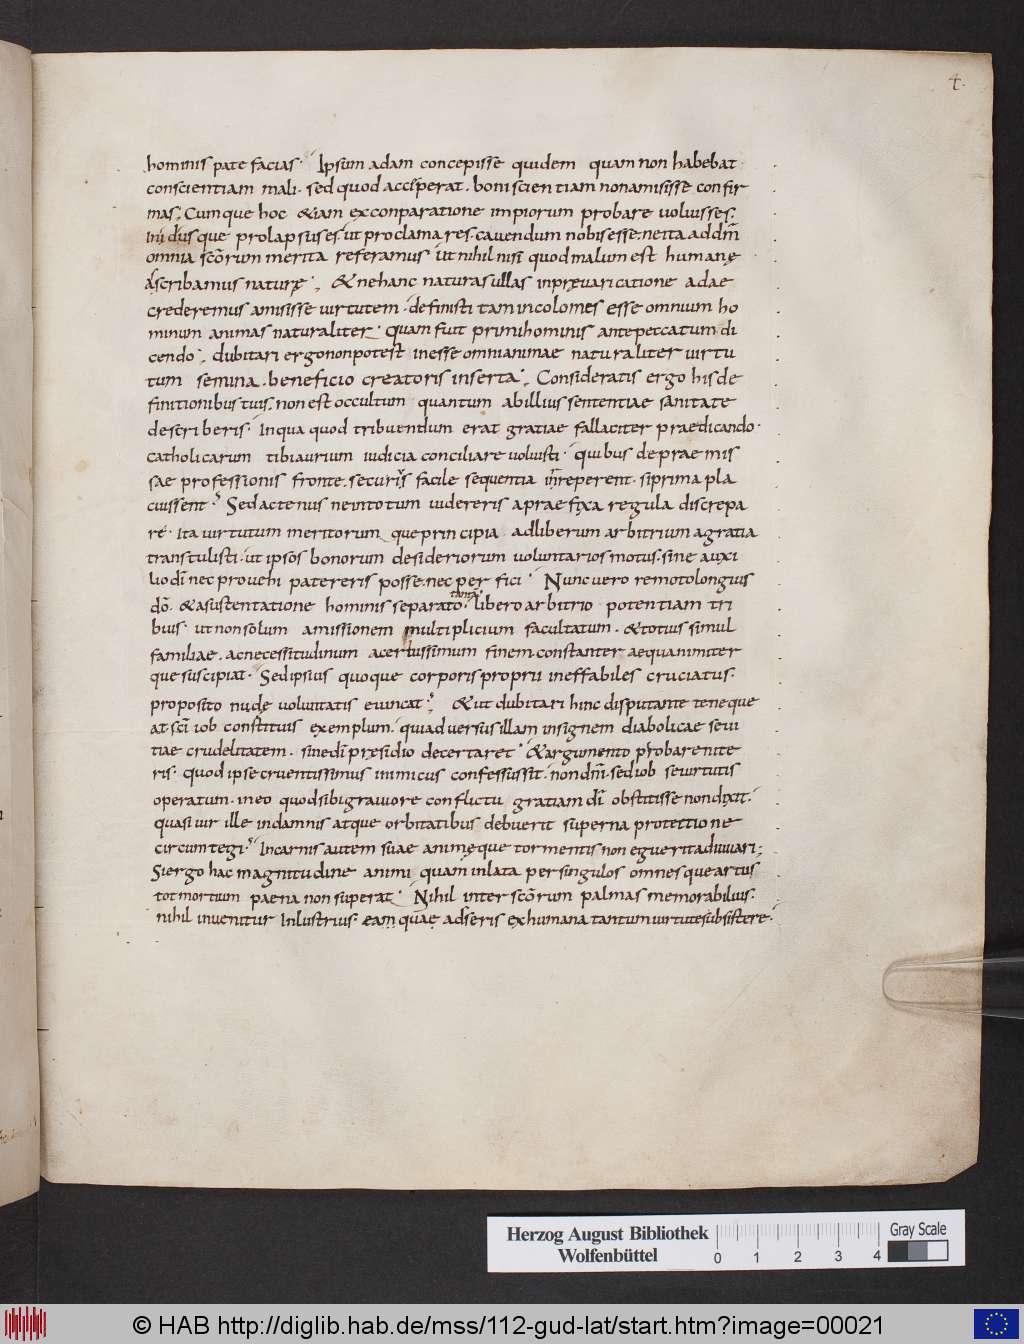 4.
hominis pate facias. Ipsum adam concepisse quidem quam non habebat
conscientiam mali. sed quod acceperat. boni scientiam non amisisse confir
mas; Cumque hoc &iam ex conparatione impiorum probare uoluisses;
In id usque prolapsus es. ut proclamares. cauendum nobis esse. ne ita ad dm̄
omnia sc̄orum merita referamus ut nihil nisi quod malum est humanę
ascribamus naturę. & ne hanc naturas ullas in pręuaricatione adae
crederemus amisisse uirtutem. definisti tam incolomes esse omnium ho
minum animas naturaliter. quam fuit primi hominis ante peccatum di
cendo. dubitari ergo non potest inesse omni animae naturaliter uirtu
tum semina. beneficio creatoris inserta. Consideratis ergo his de
finitionibus tuis. non est occultum quantum ab illius sententiae sanitate
describeris. In qua quod tribuendum erat gratiae fallaciter praedicando.
catholicarum tibi aurium iudicia conciliare uoluisti. quibus de praemis
sae professionis fronte. securis facile sequentia inreperent. si prima pla
cuissent. Sed actenus ne in totum iudereris a praefixa regula discrepa
re. Ita uirtutum meritorumque principia ad liberum arbitrium a gratia
transtulisti. ut ipsos bonorum desideriorum uoluntarios motus. sine auxi
lio dī nec prouehi patereris posse. nec perfici. Nunc uero remoto longius
dō. & a sustentatione hominis separato. tantam libero arbitrio potentiam tri
buis. ut non solum amissionem multiplicium facultatum. & totius simul
familiae. ac necessitudinum acerbissimum finem. constanter aequanimiter
que suscipiat. Sed ipsius quoque corporis proprii ineffabiles cruciatus.
proposito nudę uoluntatis euincat. & ut dubitari hinc disputante te neque
at sc̄i iob constituis exemplum. qui aduersus illam insignem diabolicae seui
tiae crudelitatem. sine dī pręsidio decertaret. & argumento probare nite
ris. quod ipse cruentissimus inimicus confessus sit. non dm̄. sed iob se uirtutis
operatum. in eo quod sibi grauiore conflictu gratiam dī obstitisse non dixit.
quasi uir ille in damnis atque orbitatibus debuerit superna protectione
circumtegi. In carnis autem suae animęque tormentis non eguerit adiuuari;
Si ergo hac magnitudine animi quam inlata per singulos omnesque artus
tot mortium paena non superat. Nihil inter sc̄orum palmas memorabilius.
nihil inuenitur Inlustrius. eam quae adseris ex humana tantum uirtute subsistere.
Herzog August Bibliothek
Wolfenbüttel
0 1 2 3 4
Gray Scale
© HAB http://diglib.hab.de/mss/112-gud-lat/start.htm?image=00021